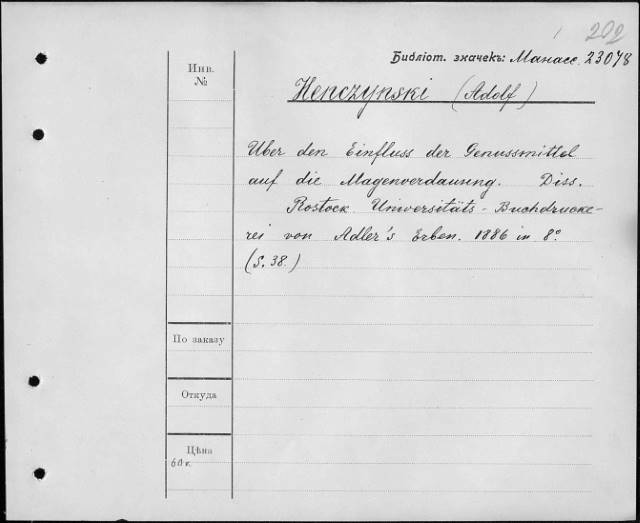 202
Библіот. значекъ: Манасс. 23078
Инв.
№
Henczynski (Adolf)
Über den Einfluss der Genussmittel
auf die Magenverdauung. Diss.
Rostock. Universitäts-Buchdrucke-
rei von Adler's Erben. 1886 in 8°.
(S. 38.)
По заказу
Откуда
Цѣна
60 к.